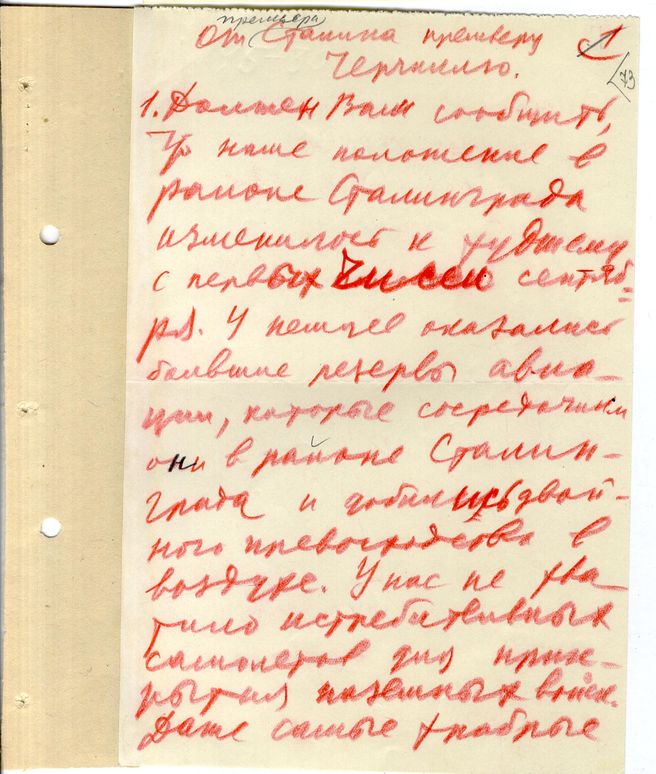 премьера
От Сталина премьеру
Черчиллю.
1
73
1. Должен Вам сообщить,
что наше положение в
районе Сталинграда
изменилось к худшему
с первых чисел сентяб=
ря. У немцев оказались
большие резервы авиа-
ции, которые сосредоточили
они в районе Сталин-
града и добились двой-
ного превосходства в
воздухе. У нас не хва
тило истребительных
самолетов для прик-
рытия наземных войск.
Даже самые храбрые